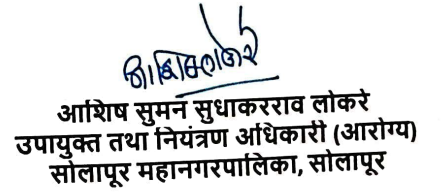 आशिष लोकरे
आशिष सुमन सुधाकरराव लोकरे
उपायुक्त तथा नियंत्रण अधिकारी (आरोग्य)
सोलापूर महानगरपालिका, सोलापूर